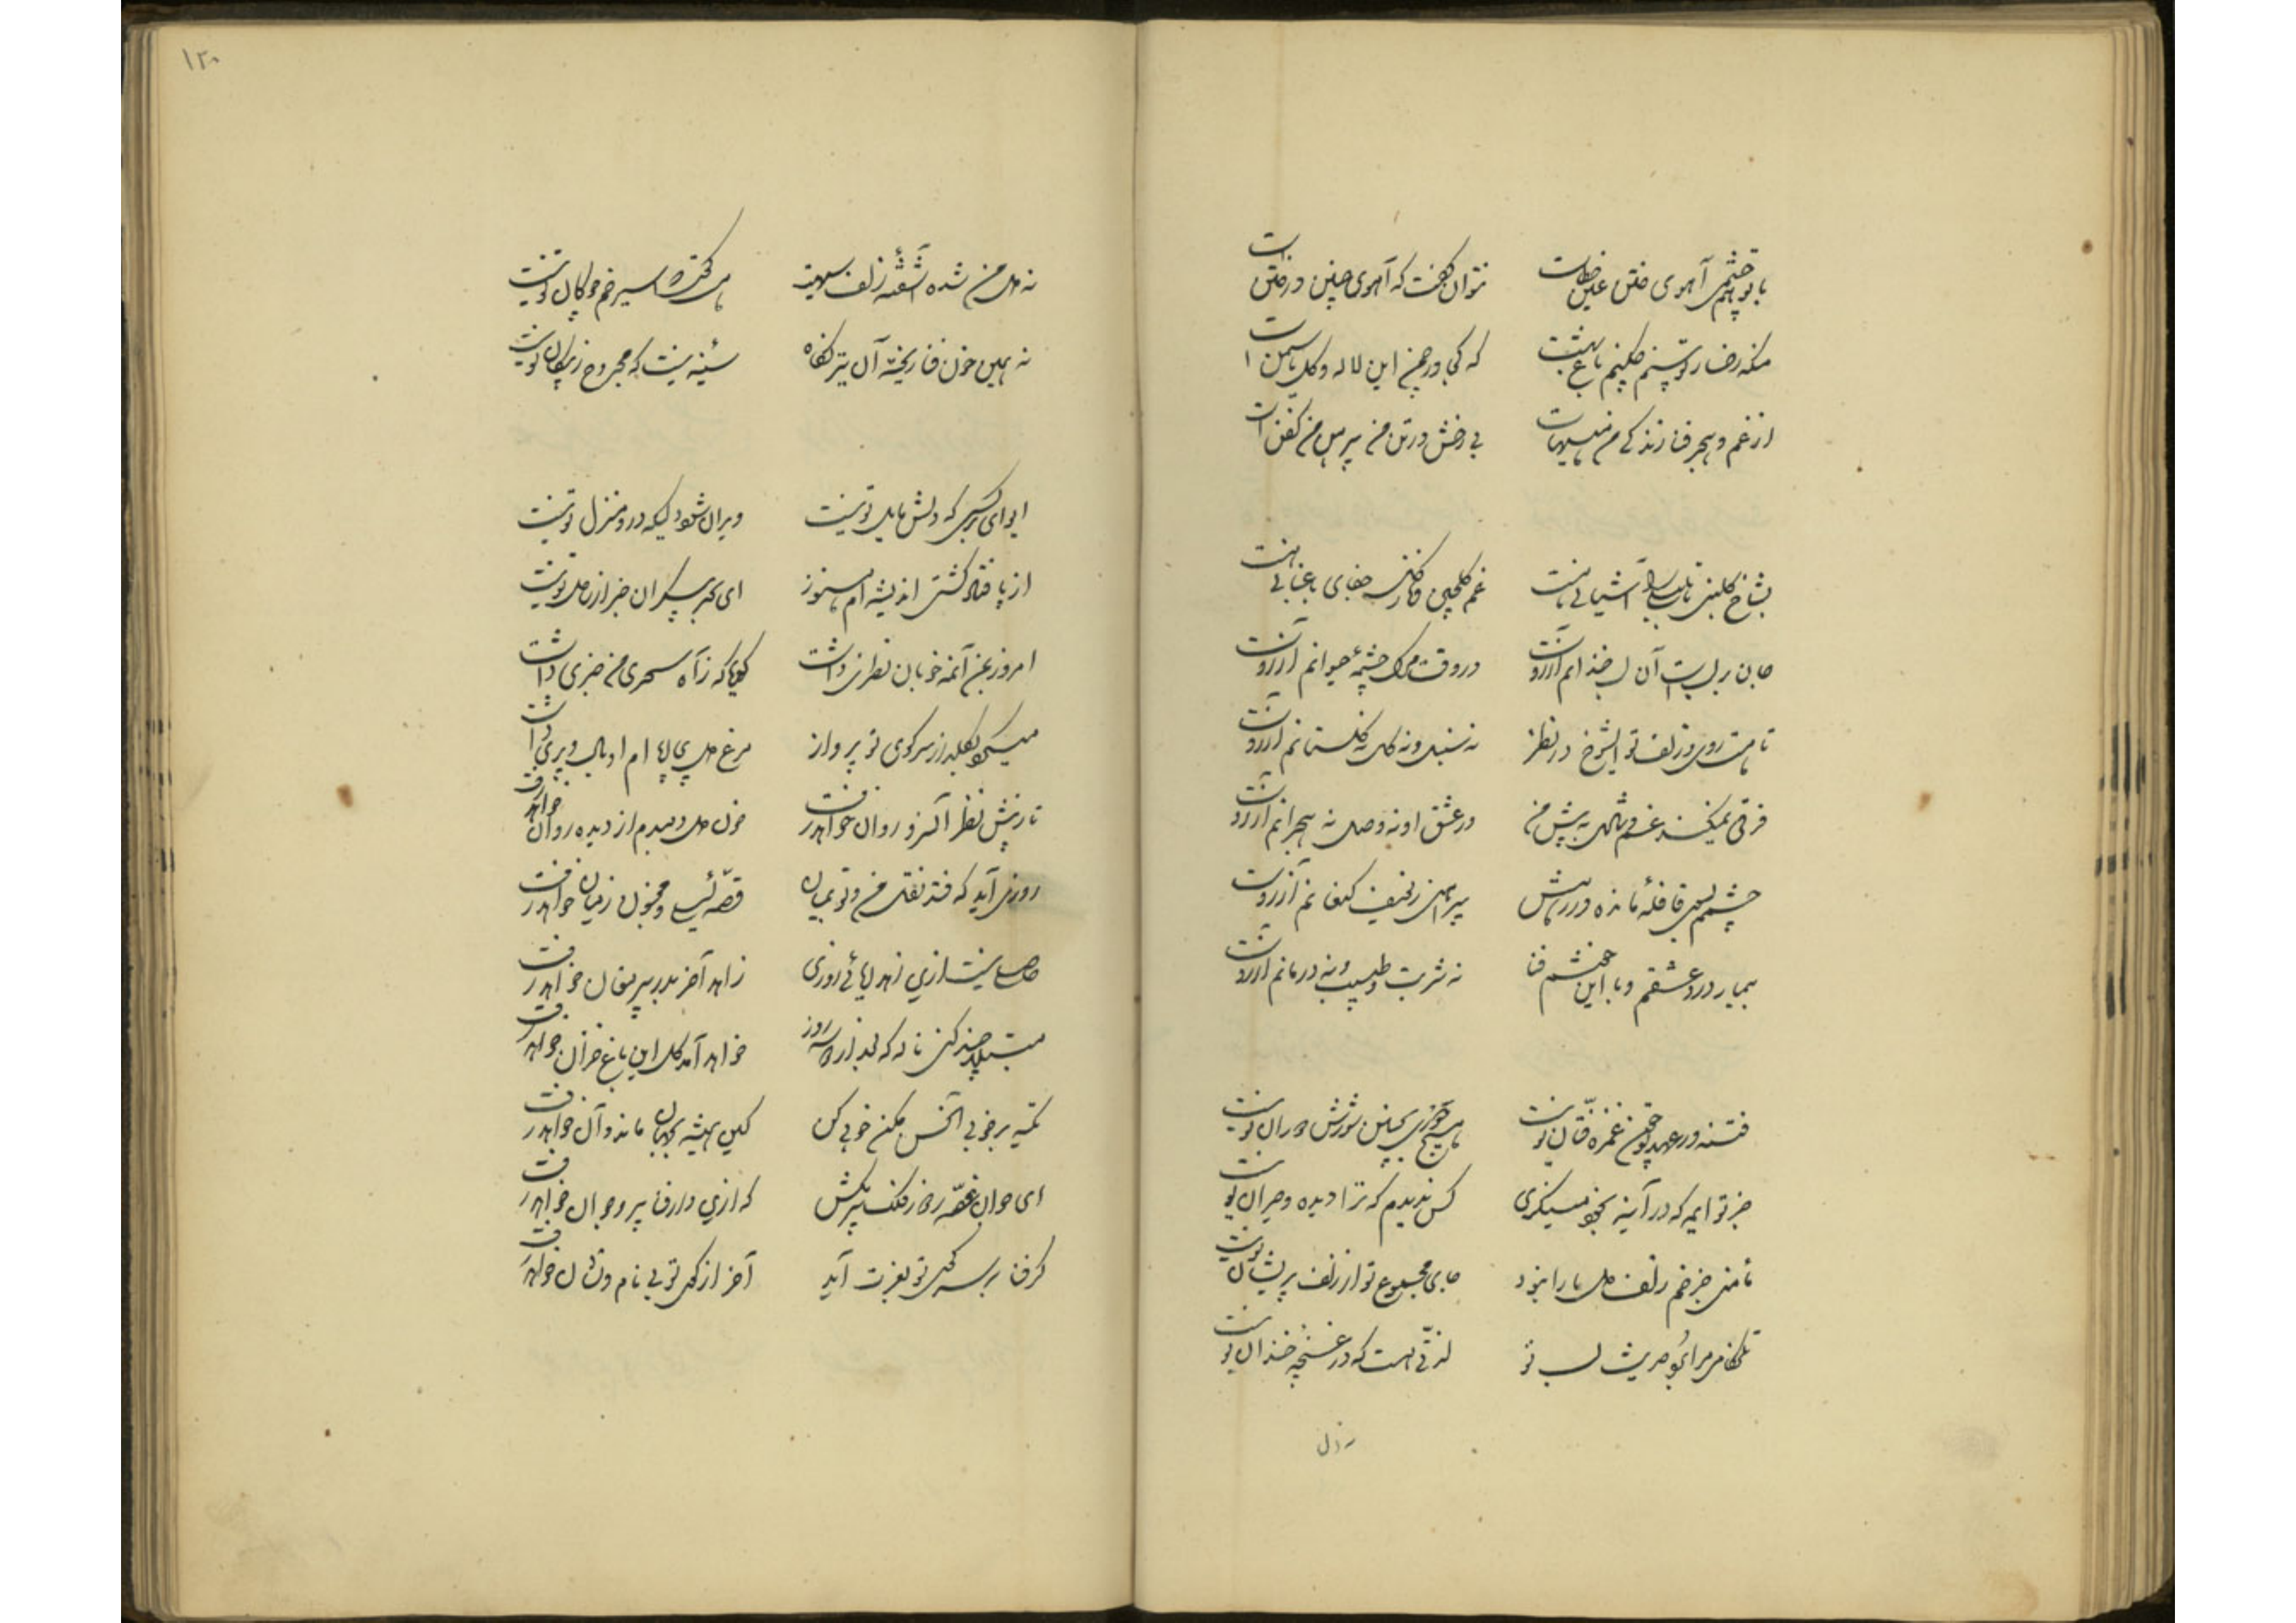 با تو چشمی آهوی ختن عین خطاست نتوان گفت که آهوی چنین در ختن است
منکه رخسار تو بینم چکنم باغ بهشت که کجا در چمن این لاله و گل یاسمن است
از غم و هجر فنا زندگی من هیهات بی رخش در تن من پیرهن من کفن است
بشاخ گلبنی تا بلبلی را آشیانی هست غم گلچین و فکر جفای باغبانی هست
جان بر لب است آن لب خندانم آرزوست در وقت مرگ چشمه حیوانم آرزوست
تا هست روی و زلف تو ایشوخ در نظر نه سنبل و نه گل نه گلستانم آرزوست
فرقی نمیکند غم و شادی به پیش من در عشق او نه وصل نه هجرانم آرزوست
چشمم بسی قافله مانده در رهش پیراهنی ز یوسف کنعانم آرزوست
بیمار درد عشقم و با این خوشم فنا نه شربت طبیب و نه درمانم آرزوست
فتنه در عهد تو چون غمزه فتان تو نیست هیچ بچنین شورش دوران تو نیست
جز تو ایمه که در آینه بخود مینگری کس ندیدم که ترا دیده و حیران تو نیست
مأمنی جز خم زلفت دل ما را نبود جای مجموع تر از زلف پریشان تو نیست
تلخکامم مرا گو حدیث لب تو لذتی هست که در غنچه خندان تو نیست
نه دل
۱۲۰
نه دل من شده آشفته زلف سیهت دل کو که اسیر خم چوگان تو نیست
نه همین خون فنا ریخته آن تیر نگاه سینه نیست که مجروح ز پیکان تو نیست
ایوای بر کسی که دلش مایل تو نیست ویران شود دلیکه در او منزل تو نیست
از پا فتاد کشتی اندیشه ام هنوز ای بحر بیکران خبر از ساحل تو نیست
امروز بمن آنمه خوبان نظری داشت گویا که ز آه سحری من خبری داشت
میکرد از سر کوی تو پرواز مرغ دل ام ار بال و پری داشت
تا ز پیش نظر آن سرو روان خواهد رفت خون دل دمبدم از دیده روان خواهد رفت
روزی آید که فتد نقل من و تو بمیان قصه لیلی و مجنون ز میان خواهد رفت
حاصلی نیست ازین زهد ریائی روزی زاهد آخر بدر پیر مغان خواهد رفت
بلبلا چند کنی ناله که بعد از دو سه روز خواهد آمد گل این باغ خزان خواهد رفت
تکیه بر خوبی آنحسن مکن خوبی کن کاین همیشه بجهان ماند و آن خواهد رفت
ای جوان غصه مخور ز فلک پیر مکش که ازین دار فنا پیر و جوان خواهد رفت
گر فنا بر سر کوی تو بعزت آید آخر از کوی تو بی نام و نشان خواهد رفت